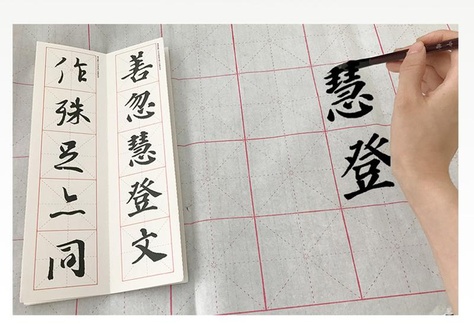 善忽慧登文
作殊足同
慧登